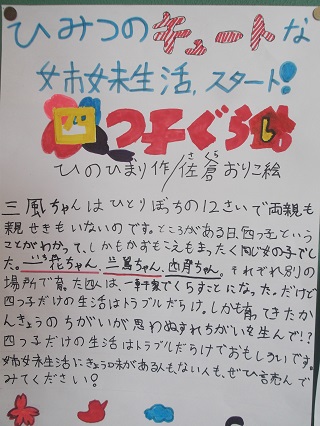 ひみつのキュートな
姉妹生活,スタート!
四つ子ぐらし
ひのひまり作/佐倉おりこ絵
さ くら
三風ちゃんはひとりぼっちの12さいで両親も
親せきもいないのです。ところがある日、四つ子という
ことがわかって、しかもかおもこえもまったく同じ女の子でし
た。一花ちゃん、二鳥ちゃん、四月ちゃん。それぞれ別の
場所で育った四人は、一軒家でくらすことになった。だけど
四つ子だけの生活はトラブルだらけ。しかも育ってきたか
んきょうのちがいが思わぬすれちがいを生んで!?
四つ子だけの生活はトラブルだらけでおもしろいです。
姉妹生活にきょう味がある人もない人も、ぜひ読んで
みてください!